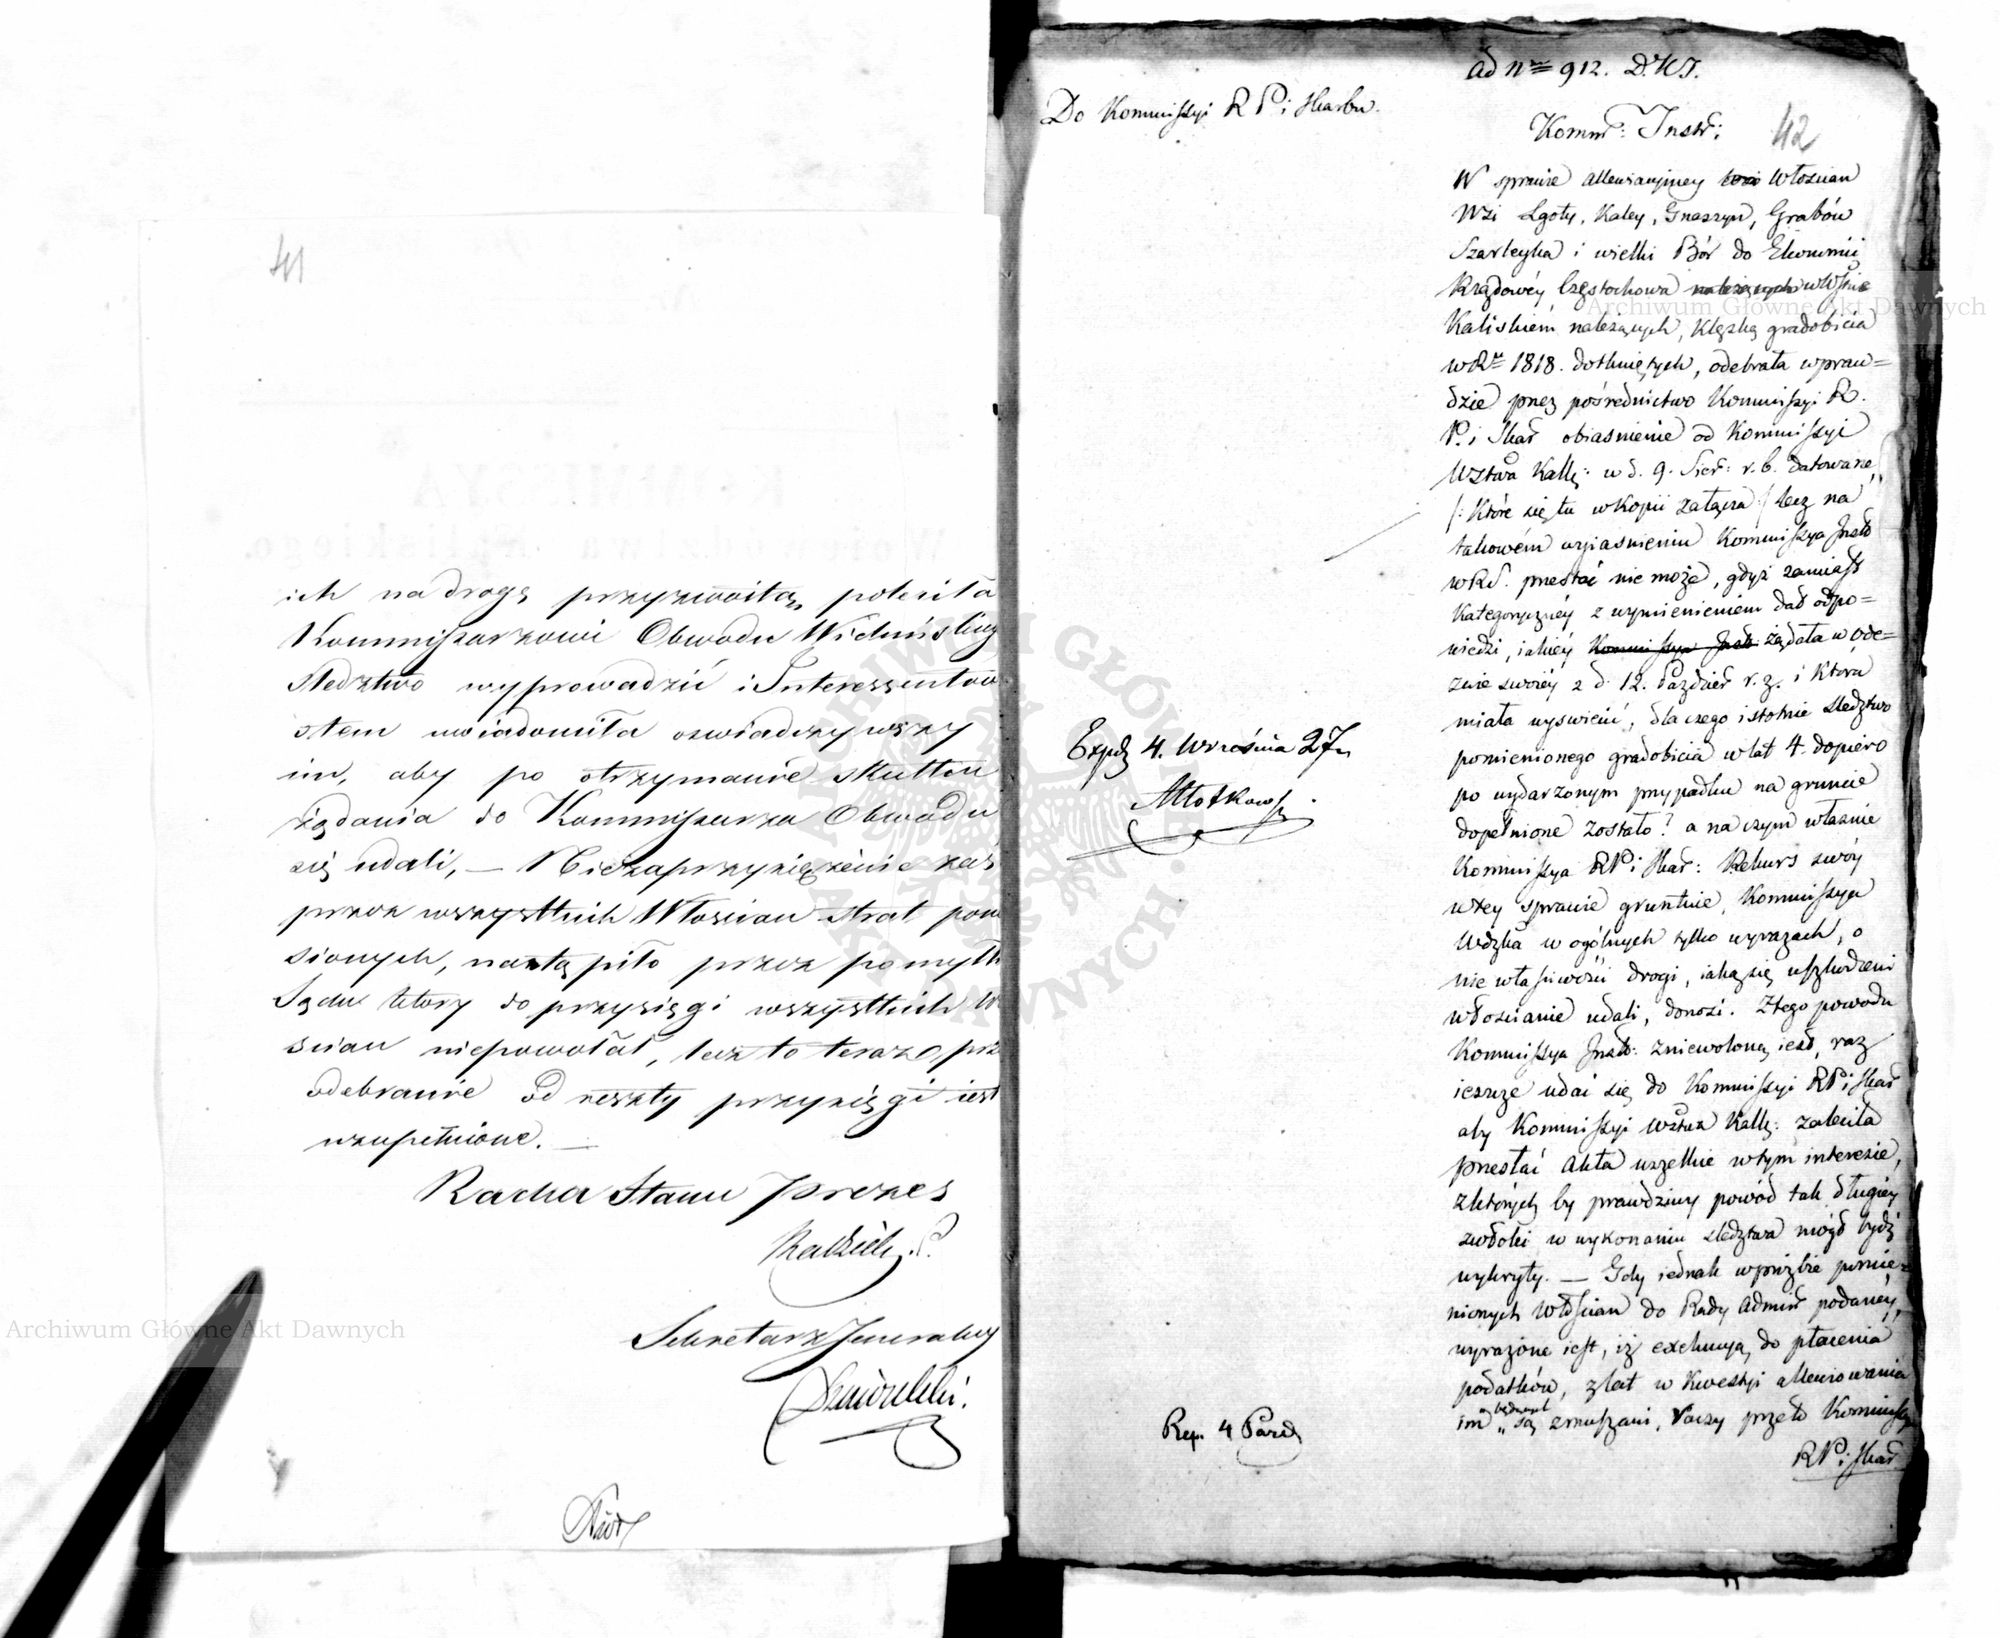 41
ich na drogę przyzwoitą, poleciła
Kommissarzowi Obwodu Wieluńskiego
sledztwo wyprowadzić i Interessentow
o tem uwiadomiła oswiadczywszy
im, aby po otrzymanie skutku
żądania do Kommissarza Obwodu
się udali, — Niezaprzysiężenie zaś
przez wszystkich Włoscian strat ponie
sionych, nastąpiło przez pomyłk
Sądu ktory do przysięgi wszystkich W
scian niepowołał, lecz to teraz prz
odebranie od reszty przysięgi iest
uzupełnione. —
Radca Stanu Prezes
Sekretarz Jeneralny
ad Nrm 912. D.K.I.
Do Kommissyi R P i Skarbu.
Komm: Instr:
42
W sprawie allewiacyiney Włoscian
Wsi Lgoty, Kaley, Gnaszyn, Grabów
Szarleyka i wielki Bór do Ekonomii
Rządowéy Częstochowa należących w Wstwie
Kaliskiém należących, klęską gradobicia
w Ru 1818. dotkniętych, odebrała wpraw=
dzie przez pośrednictwo Kommissyi R.
P. i Skar obiasnienie od Kommissyi
Wztwa Kalls: w d. 9. Sier: r. b. datowane,
/: Które się tu w Kopii załącza :/ lecz na
takowém wyiasnieniu Kommissya Instr
w R S. przestać nie może, gdyż zamiast
Kategoryczney z wymienieniem dat odpo=
wiedzi, iakiéy Kommissya Instr: żądała w Ode=
zwie swoiéy z d. 12. Paździer r. z. i która
miała wyswiecić, dla czego istotnie sledztwo
pomienionego gradobicia w lat 4. dopiero
po wydarzonym przypadku na gruncie
dopełnione zostało? a na czym własnie
Kommissya RP i Skar: Rekurs swóy
w tey sprawie gruntuie, Kommissya
Wdzka w ogólnych tylko wyrazach, o
nie właściwości drogi, iaką się uszkodzeni
włoscianie udali, donosi. Z tego powodu
Kommissya Instr: zniewoloną iest, raz
ieszcze udać się do Kommissyi RP i Skar
aby Kommissyi Wztwa Kalls: zaleciła
przesłać Akta wszelkie w tym interesie,
z których by prawdziwy powód tak długiéy
zwłoki w wykonaniu sledztwa mógł bydź
wykryty. — Gdy iednak w prośbie pomie=
nionych Włościan do Rady Admin podaney,
wyrażone iest, iż exekucyą do płacenia
podatków, z lat w kwestyi allewiowania
będących
im „ są zmuszani, raczy przeto Kommissya
RP i Skar
Expdy 4. Września 27
Rep. 4 Paźd
Archiwum Główne Akt Dawnych
Archiwum Główne Akt Dawnych
ARCHIWUM GŁÓWNE AKT DAWNYCH